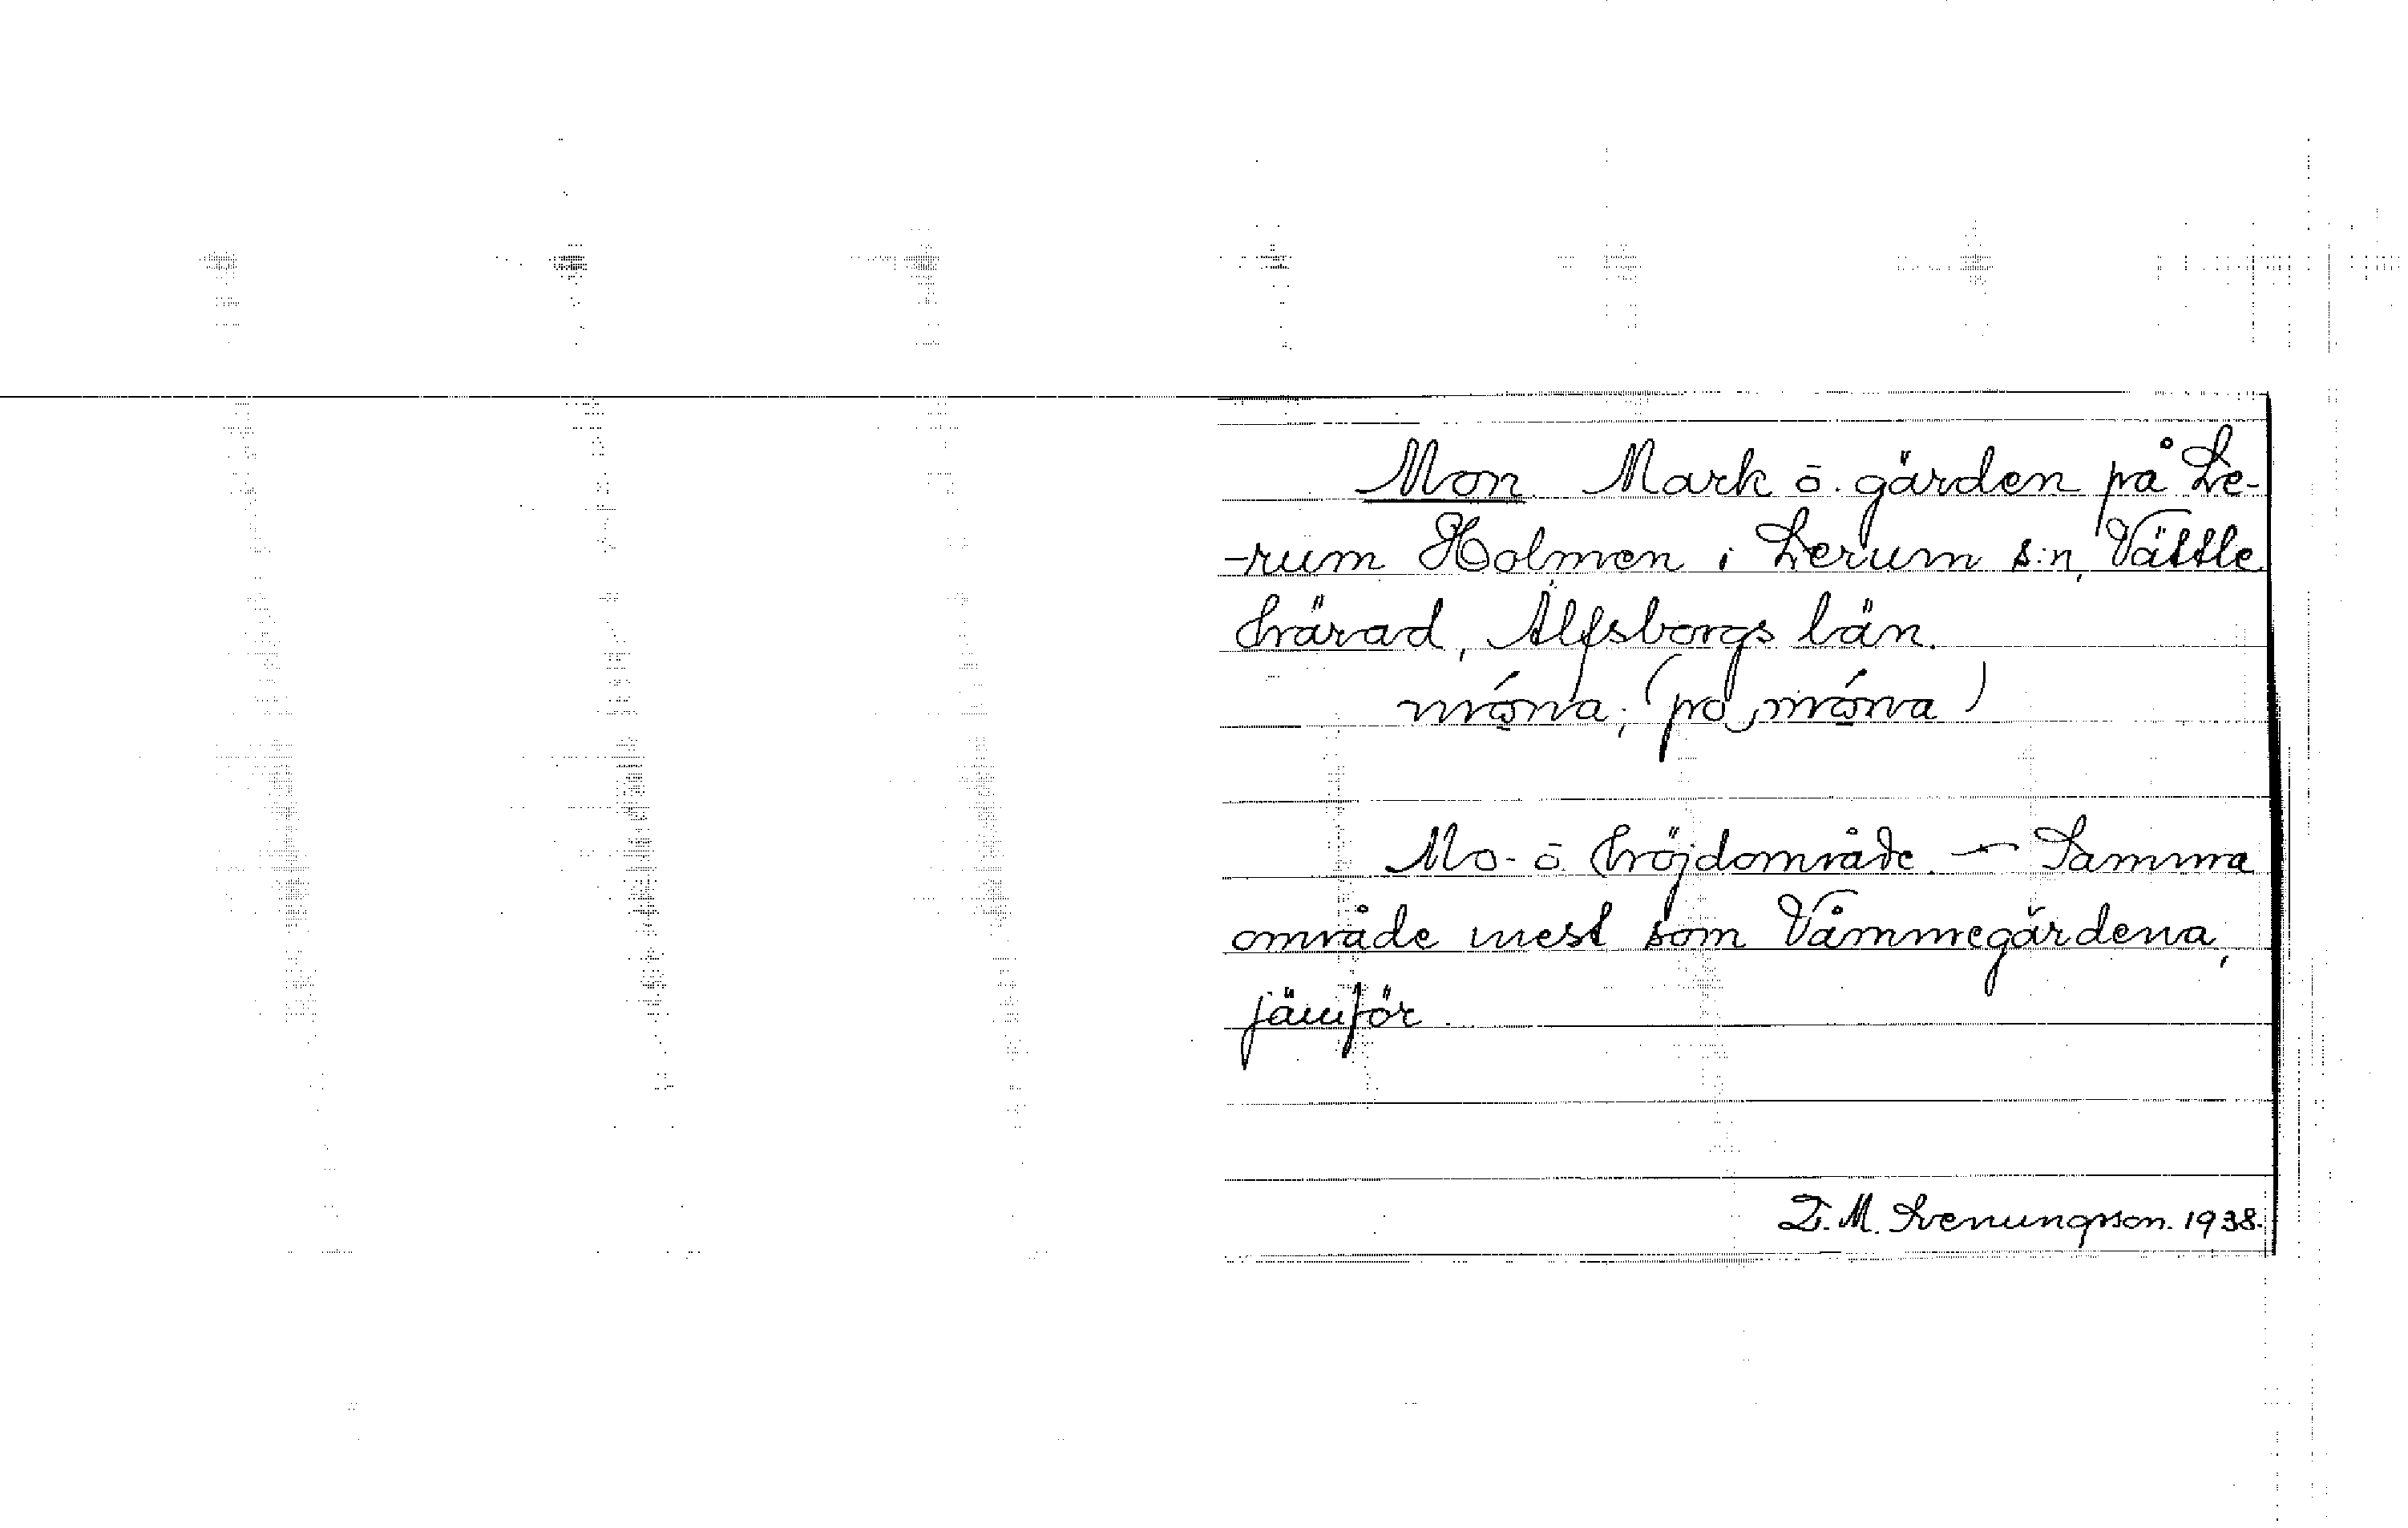 Mon. Mark ō. gärden på Le-
-rum Holmen i Lerum s:n, Vättle
härad, Älfsborgs län.
móna; (po móna)
Mo- ō. höjdområde. — Samma
område mest som Våmmegärdena,
jämför.
D. M. Svenungsson. 1938.